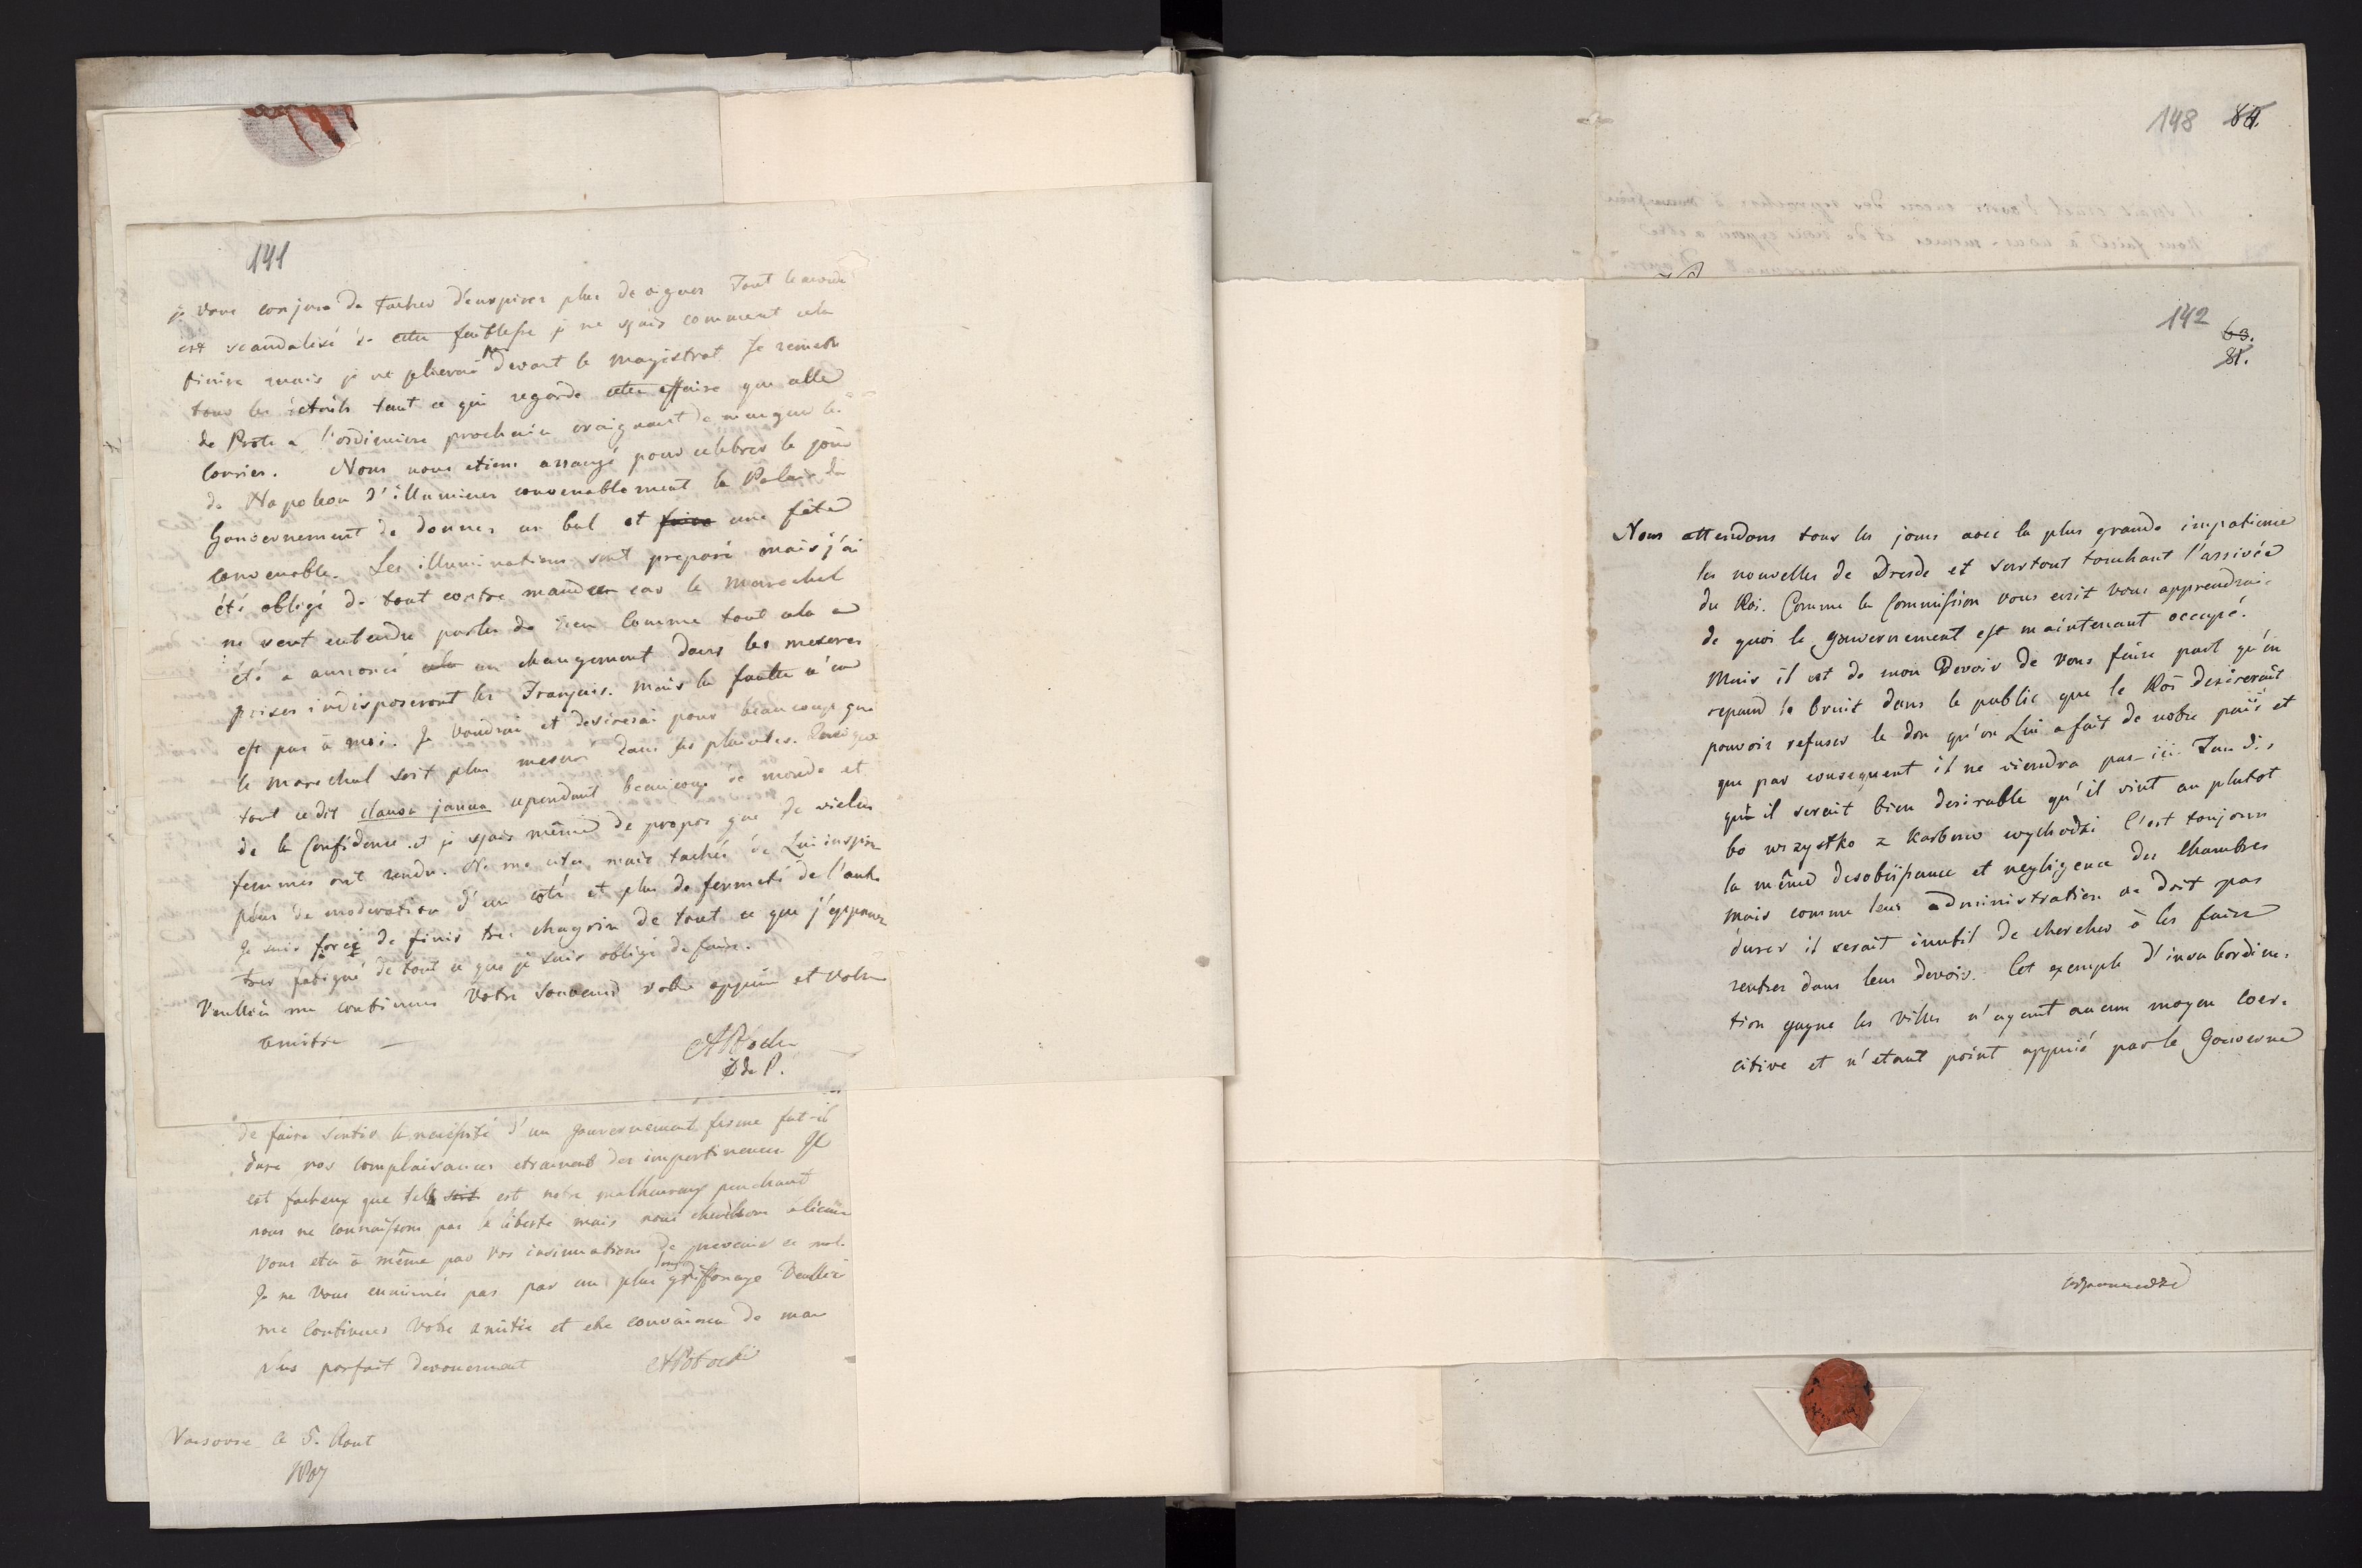 141
je vous conjure de tacher d'inspirer plus de vigeur Tout le monde
est scandalisé de cette faiblesse je ne sçais comment cela
finira mais je ne plierai pas devant le magistrat Je remets
tous les details tant ce qui regarde cette affaire que celle
de Prote a l'ordinaire prochain craignant de manquer le
Courier. Nous nous etions arrangé pour celebrer le jour
de Napoleon d'illuminer convenablement le Palais du
Gouvernement de donner un bal et faire une fête
convenable. Les illuminations sont preparé mais j'ai
été obligé de tout contremander car le Marechal
ne veut entendre parler de rien Comme tout cela a
été a annoncé cela un changement dans les mesures
prises indisposeront les Français. Mais la faute n'en
est pas à moi. Je voudrai et desirerai pour beaucoup que
le Marechal soit plus mesuré dans ses plaintes. Quoique
tout ce dit clausa janua cependant beaucoup de monde et
de la Confidence et je sçais même de propos que de vielles
femmes ont rendu. Ne me citez mais tachés de Lui inspirer
plus de moderation d'un coté et plus de fermeté de l'autre
Je suis forcé de finir tres chagrin de tout ce que j'apprens
tres fatigué de tout ce que je suis obligé de faire.
Veuillez me continuer Votre souvenir votre appuis et votre
amitie —
APotocki
P.
de faire sentir la necessité d'un gouvernement ferme fut-il
dure nos complaisances etraient des impertinences Il
est facheux que telle soit est notre malheureux penchant
nous ne connaissons pas la liberté mais nous cherchons alicence
Vous etes à même par vos insinuations de prevenir ce mal.
Je ne Vous ennuirés pas par un plus long griffonage Veuillez
me Continuer Votre amitié et etre convaincu de mon
plus parfait devouement APotocki
Varsovie le 5. Aout
1807
148 84.
142
63.
81.
Nous attendons tous les jours avec la plus grande impatience
les nouvelles de Dresde et surtout touchant l'arrivée
du Roi. Comme la Commission vous ecrit vous apprendrai
de quoi le gouvernement est maintenant occupé.
Mais il est de mon Devoir de Vous faire part qu'on
repand le bruit dans le public que le Roi desirerait
pouvoir refuser le don qu'on Lui a fait de notre païs et
que par consequent il ne viendra pas ici Tandis
qu'il serait bien desirable qu'il vint au plutot
bo wszystko z karbow wychodzi C'est toujours
la même desobeissance et negligence des Chambres
mais comme leur administration ne doit pas
durer il serait inutil de chercher à les faire
rentrer dans leur devoir. Cet exemple d'insubordina-
tion gagne les villes n'ayant aucun moyen coer-
citive et n'etant point appuié par le Gouverne